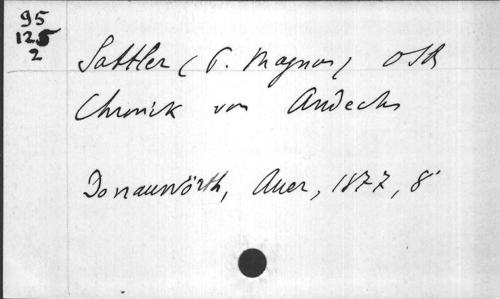 95
125
2
Sattler (P. Magnus) OSB
Chronik von Andechs
Donauwörth, Auer, 1877, 8°